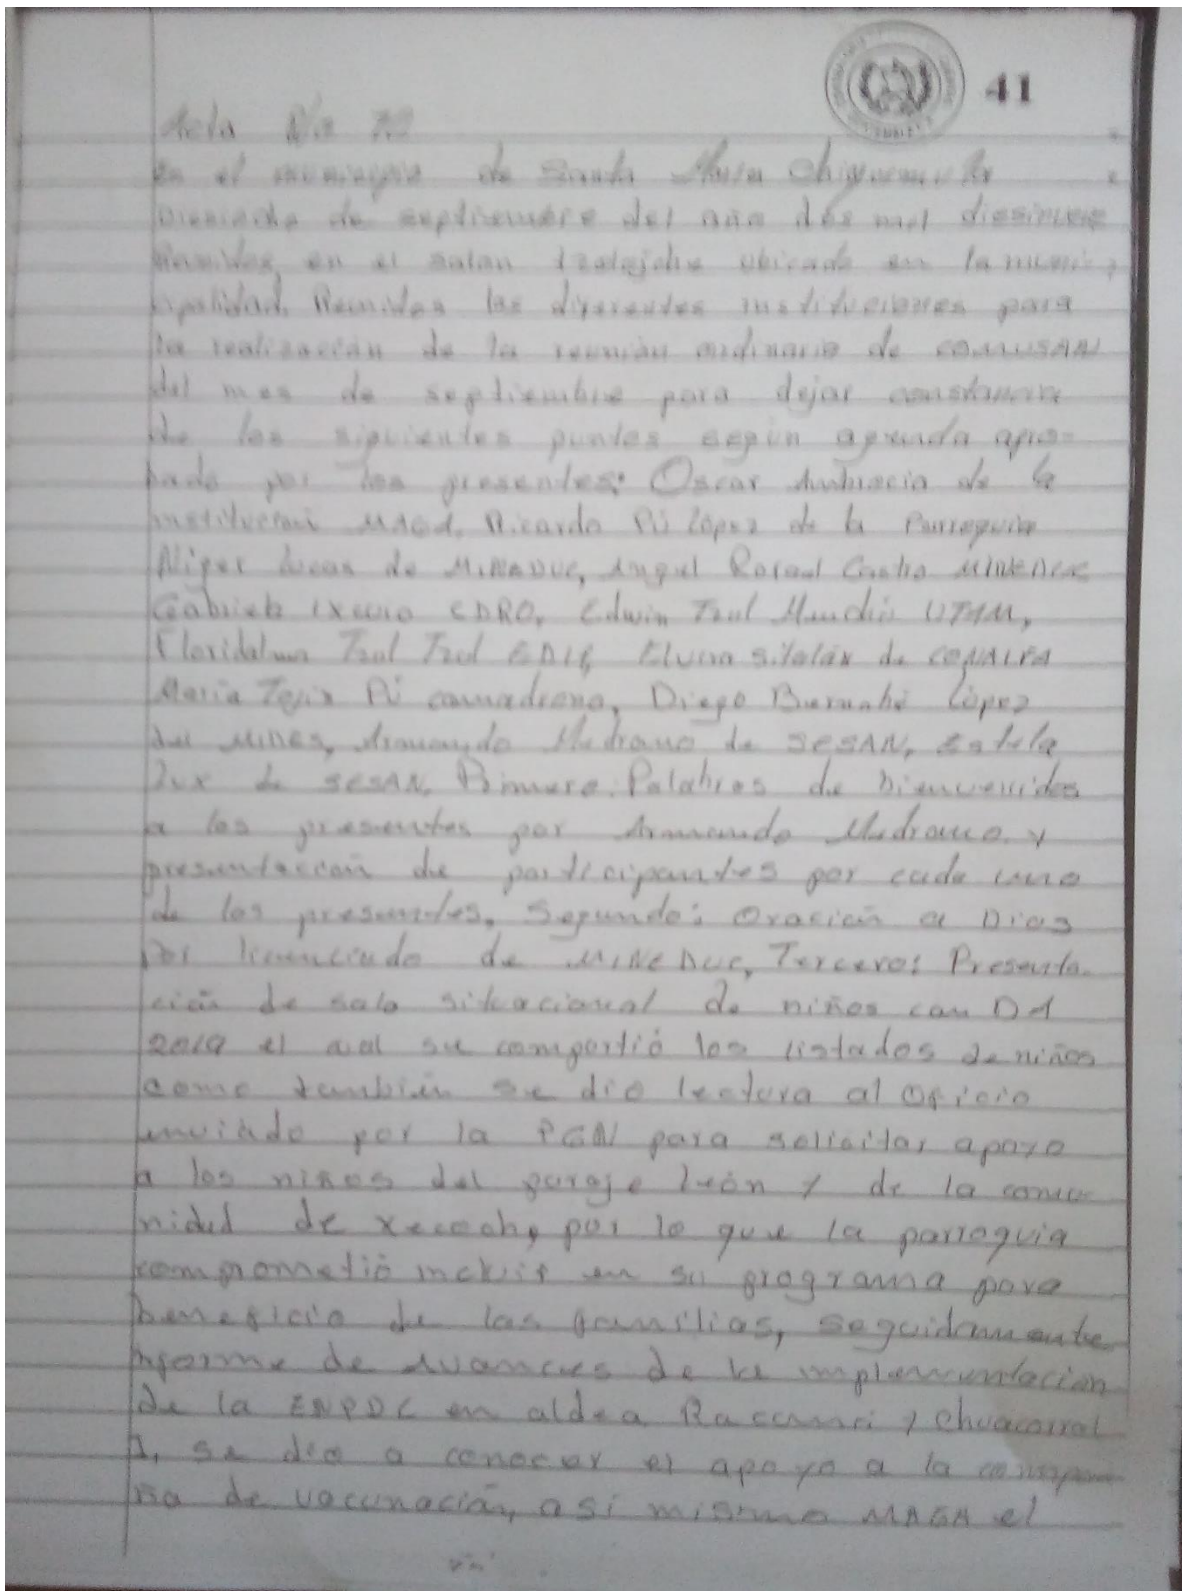 41
Acta No
en el municipio de Santa María Chiquimula
Dieciocho de septiembre del año dos mil diesinueve
Reunidos, en el salon ubicado en la munici
palidad. Reunidos las diferentes instituciones para
la realización de la reunión ordinaria de COMUSAN
del mes de septiembre para dejar constancia
de los siguientes puntos según agenda apro-
bado por los presentes: Oscar de la
institución MAGA, Ricardo Pú López de la Parroquia
Lucas de MINEDUC, Angel Rafael Castro MINEDUC
Gabriela CDRO, Edwin Tzul UTAM,
Floridalma Tzul Tzul Elvira Sitalán de CONALFA
María Tojin Pú comadrona, Diego Bernabé López
del MIDES, Armando Medrano de SESAN, Estela
Lux de SESAN, Primero: Palabras de bienvenidos
a los presentes por Armando Medrano y
presentación de participantes por cada uno
de los presentes, Segundo: Oración a Dios
Por licenciado de MINEDUC, Tercero: Presenta-
ción de sala situacional de niños con DA
2019 el cual se compartió los listados de niños
como también se dio lectura al Oficio
enviado por la PGN para solicitar apoyo
a los niños del paraje León y de la comu
nidad de Xecoch, por lo que la parroquia
comprometió incluir en su programa para
beneficio de las familias, seguidamente
informe de avances de la implementación
de la ENPDC en aldea Racaná y Chuacorral
I, se dio a conocer el apoyo a la campa
ña de vacunación, así mismo MAGA el